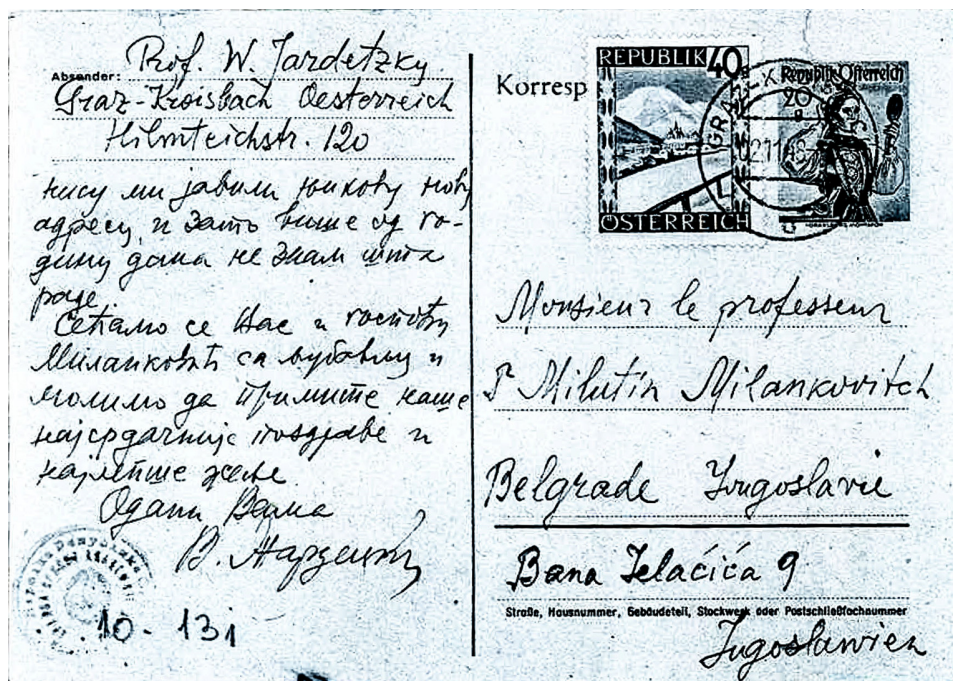 Absender: Prof. W. Jardetzky
Graz-Kroisbach Oesterreich
Hilmteichstr. 120
нису ми јавили њихову нову
адресу, и зато више од го-
дину дана не знам шта
раде.
Сећамо се Вас и госпођу
Миланковић са љубављу и
молимо да примите наше
најсрдачније поздраве и
најлепше жеље
Одани Вама
В. Жардецки
10-131
Korresp
REPUBLIK 40g
ÖSTERREICH
Republik Österreich
20
g
GRAZ
Monsieur le professeur
Milutin Milankovitch
Belgrade Jougoslavie
Bana Jelačića 9
Straße, Hausnummer, Gebäudeteil, Stockwerk oder Postschließfachnummer
Jugoslawien